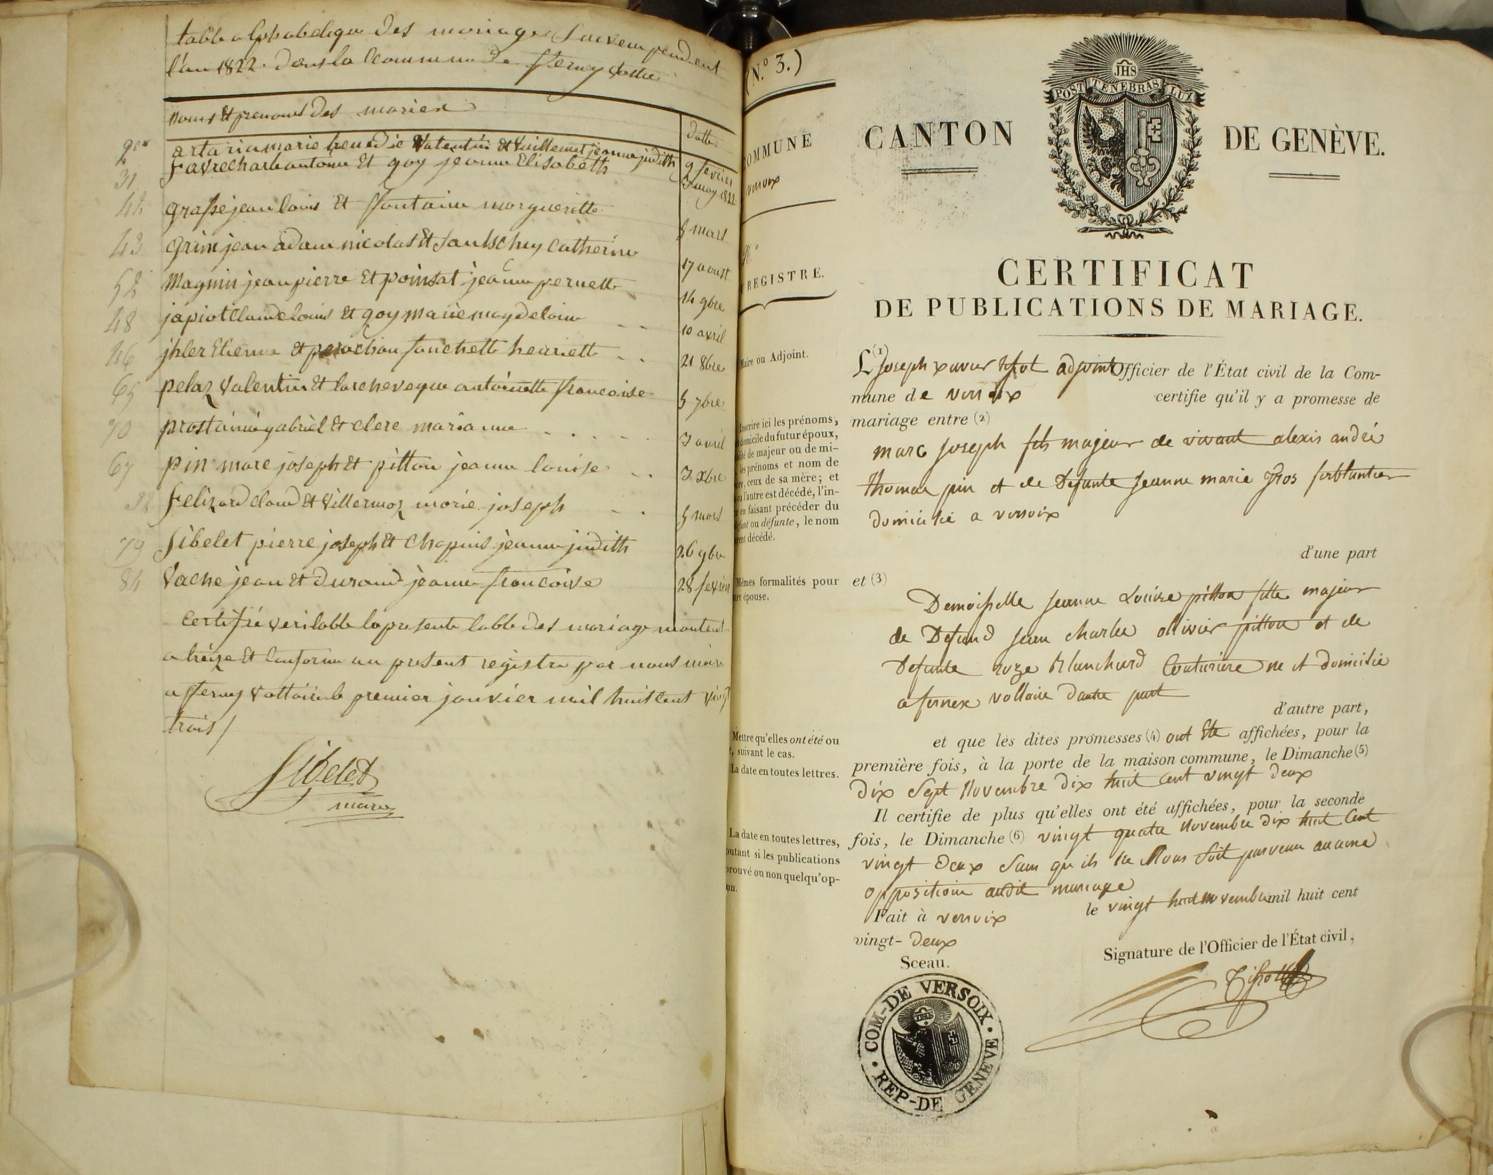 table alphabetique des mariages survenu pendant
l'an 1822 dans la Commune de ferney voltre
noms et prenoms des mariés
dattes
artaria marie benedic Valentin et Vuillemet jeanne judith
9 fevrier
31 favre charle antoine Et goy jeanne Elisabeth
7 may 1822
44 grasse jean louis Et fontaine marguerite
8 mars
43 grim jean adam nicolas Et Catherine
17 aoust
52 Magnin jean pierre Et poinsat jeanne pernette
14 9bre
48 japiot Claude louis Et goy marie magdelaine
10 avril
46 jhler Etienne Et fanchette henriette
21 8bre
65 pelaz Valentin Et larcheveque antoinette francoise
5 7bre
70 gabriel Et Clerc marianne
3 avril
67 pin marc joseph Et pitton jeanne louise
3 xbre
felizard Claud Et Villermoz marie joseph
5 mars
79 Sibelet pierre joseph Et Chapuis jeanne judith
26 9bre
84 Vache jean Et Durand jeanne francoise
28 fevrier
Certifié veritable la presente table des mariage montent
a treize Et Conforme au present registre par nous maire
a ferney voltaire le premier janvier mil huit cent vingt
trois /
Sibelet
maire
(N.º 3.)
COMMUNE
versoix
REGISTRE.
Maire ou Adjoint.
Inscrire ici les prénoms,
domicile du futur époux,
de majeur ou de mi-
les prénoms et nom de
ceux de sa mère; et
l'autre est décédé, l'in-
en faisant précéder du
ou défunte, le nom
décédé.
Mêmes formalités pour
épouse.
Mettre qu'elles ont été ou
suivant le cas.
La date en toutes lettres.
La date en toutes lettres,
si les publications
ou non quelqu'op-
JHS
POST TENEBRAS LUX
CANTON DE GENÈVE.
CERTIFICAT
DE PUBLICATIONS DE MARIAGE.
L (1) Joseph xavier adjoint Officier de l'État civil de la Com-
mune de versoix certifie qu'il y a promesse de
mariage entre (2)
marc Joseph fils majeur de vivant alexis andré
thomas pin et de Defunte Jeanne marie Gros ferblantier
domicilié a versoix
d'une part
et (3)
Demoiselle Jeanne Louise pitton fille majeur
de Defund Jean Charle olivier pitton et de
Defunte roze Blanchard Couturiere ne et domicilie
a fernex voltaire dautre part
d'autre part,
et que les dites promesses (4) ont Eté affichées, pour la
première fois, à la porte de la maison commune, le Dimanche (5)
dix Sept Novembre dix huit Cent vingt deux
Il certifie de plus qu'elles ont été affichées, pour la seconde
fois, le Dimanche (6) vingt quatre Novembre dix huit Cent
vingt Deux Sans qu'ils Nous soit parvenu aucune
opposition audit mariage
Fait à versoix le vingt huit novembre mil huit cent
vingt- deux
Signature de l'Officier de l'État civil,
Sceau.
COM-DE VERSOIX.
REP-DE GENEVE